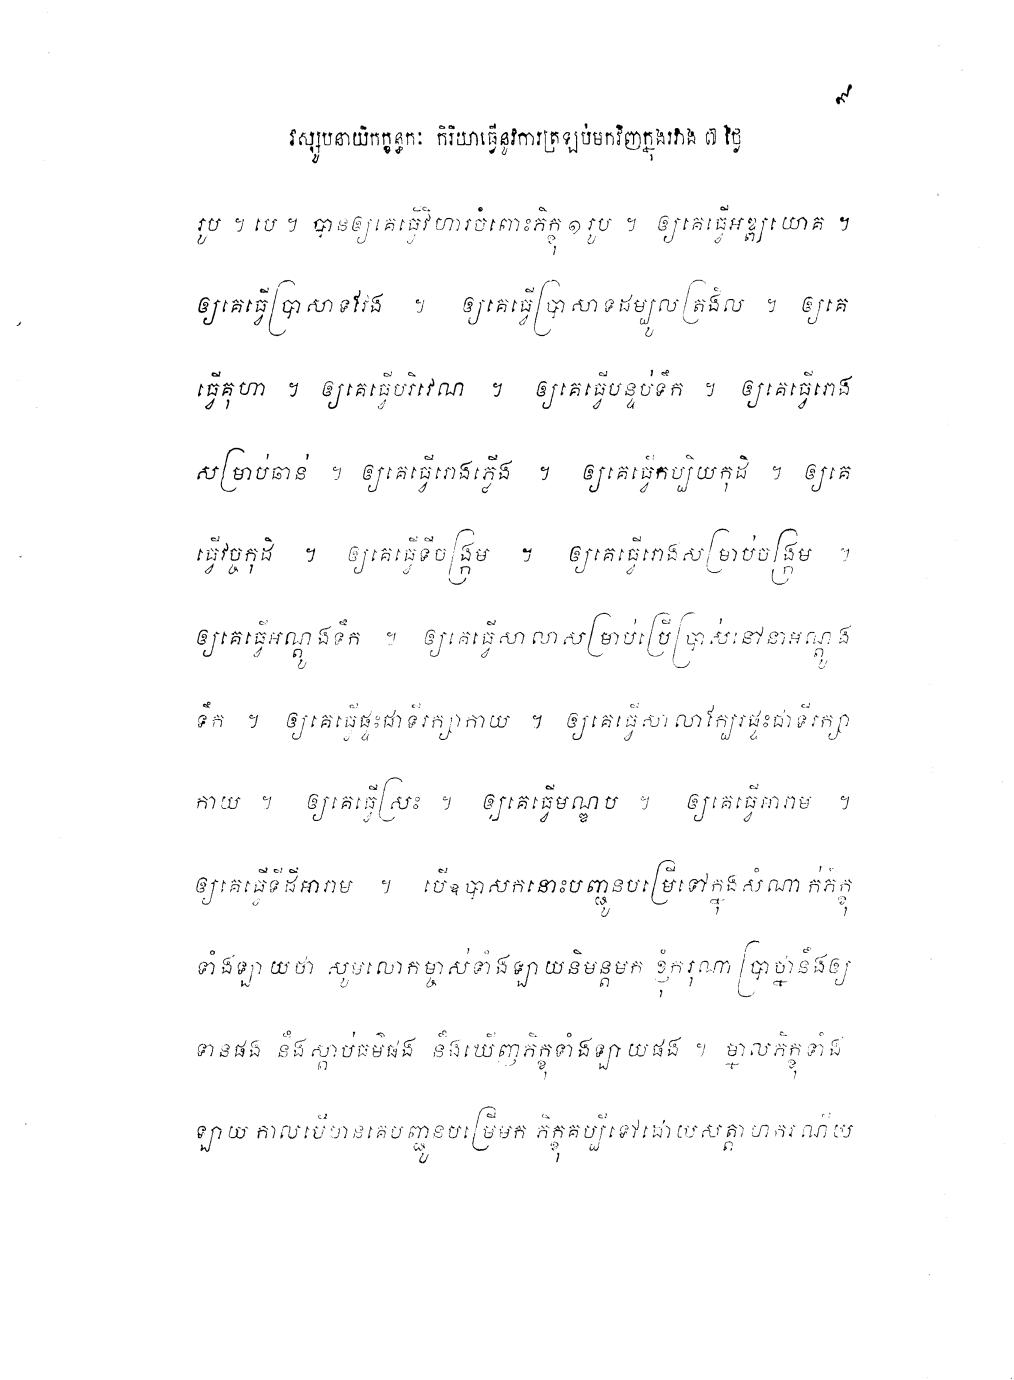 ៩
វស្សូបនាយិកក្ខន្ធកៈ កិរិយាធ្វើនូវការត្រឡប់មកវិញក្នុងរវាង ៧ ថ្ងៃ
រូប ។ បេ ។ បានឲ្យគេធ្វើវិហារចំពោះភិក្ខុ ១ រូប ។ ឲ្យគេធ្វើអឌ្ឍយោគ ។
ឲ្យគេធ្វើប្រាសាទវែង ។ ឲ្យគេធ្វើប្រាសាទដម្បូលត្រងិល ។ ឲ្យគេ
ធ្វើគុហា ។ ឲ្យគេធ្វើបរិវេណ ។ ឲ្យគេធ្វើបន្ទប់ទឹក ។ ឲ្យគេធ្វើរោង
សម្រាប់ឆាន់ ។ ឲ្យគេធ្វើរោងភ្លើង ។ ឲ្យគេធ្វើកប្បិយកុដិ ។ ឲ្យគេ
ធ្វើវច្ចកុដិ ។ ឲ្យគេធ្វើទីចង្ក្រម ។ ឲ្យគេធ្វើរោងសម្រាប់ចង្ក្រម ។
ឲ្យគេធ្វើអណ្តូងទឹក ។ ឲ្យគេធ្វើសាលាសម្រាប់ប្រើប្រាស់នៅនាអណ្តូង
ទឹក ។ ឲ្យគេធ្វើផ្ទះជាទីរក្សាកាយ ។ ឲ្យគេធ្វើសាលាក្បែរផ្ទះជាទីរក្សា
កាយ ។ ឲ្យគេធ្វើស្រះ ។ ឲ្យគេធ្វើមណ្ឌប ។ ឲ្យគេធ្វើអារាម ។
ឲ្យគេធ្វើទីដីអារាម ។ បើឧបាសកនោះបញ្ជូនបម្រើទៅក្នុងសំណាក់ភិក្ខុ
ទាំងឡាយថា សូមលោកម្ចាស់ទាំងឡាយនិមន្តមក ខ្ញុំករុណាប្រាថ្នានឹងឲ្យ
ទានផង នឹងស្តាប់ធម៌ផង នឹងឃើញភិក្ខុទាំងឡាយផង ។ ម្នាលភិក្ខុទាំង
ឡាយ កាលបើមានគេបញ្ជូនបម្រើមក ភិក្ខុគប្បីទៅដោយសត្តាហករណីយ